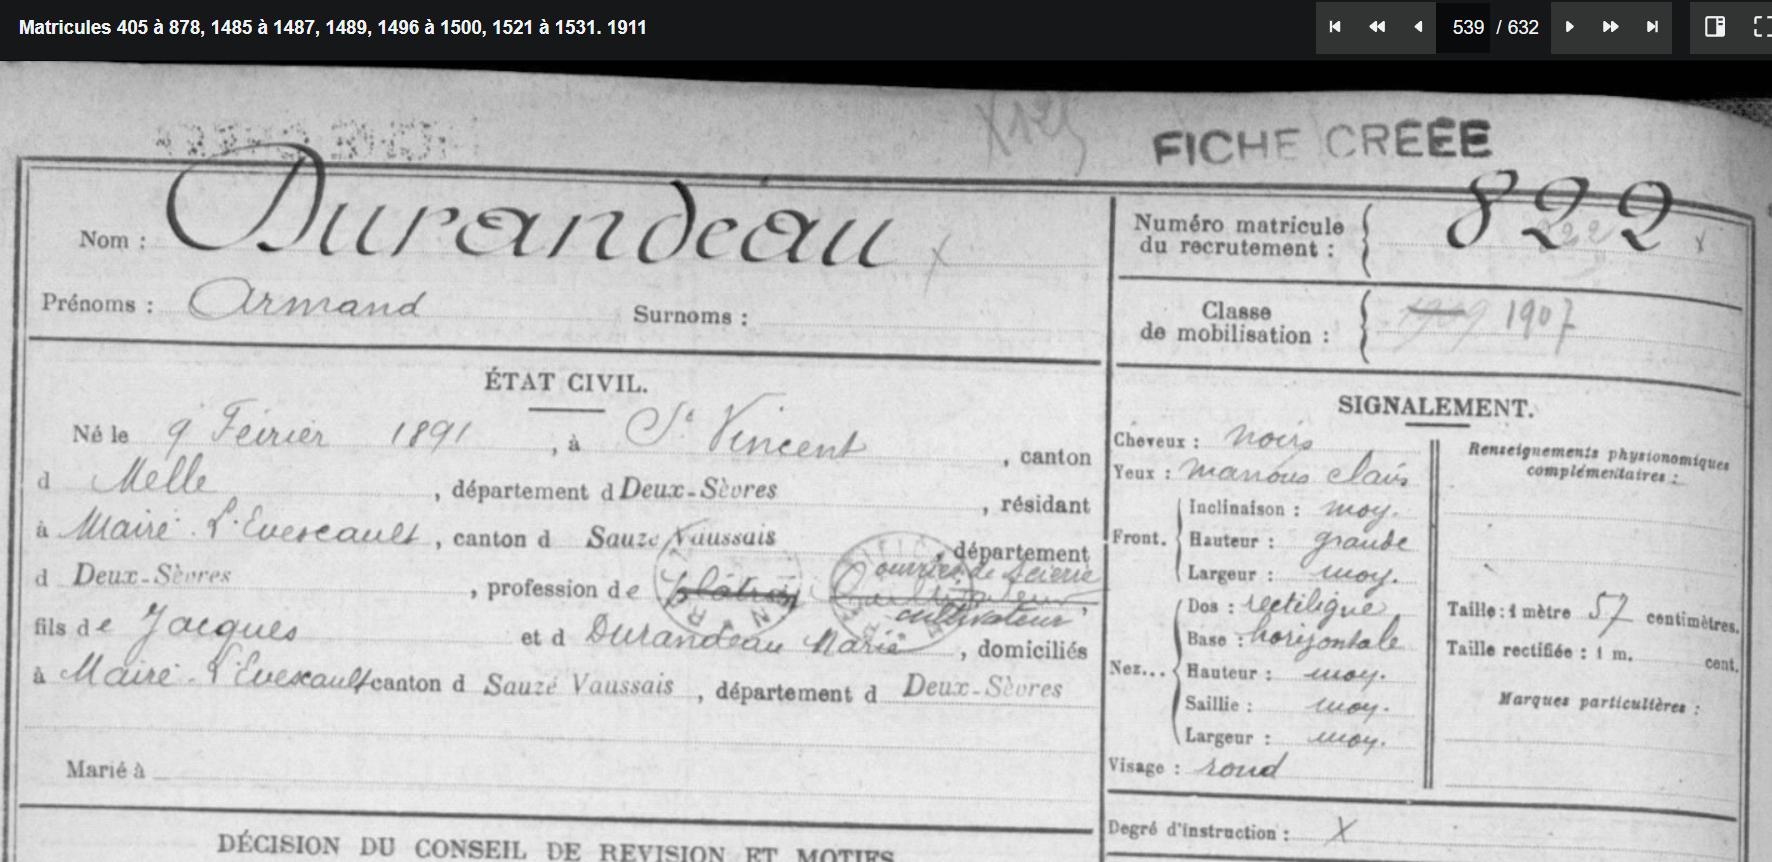 Matricules 405 à 878, 1485 à 1487, 1489, 1496 à 1500, 1521 à 1531. 1911
539 / 632
FICHE CRÉÉE
Nom : Durandeau x
Prénoms : Armand Surnoms :
Numéro matricule du recrutement : 822 x
Classe de mobilisation : 1909 1907
ÉTAT CIVIL.
Né le 9 Février 1891, à St Vincent, canton
d Melle, département d Deux-Sèvres, résidant
à Mairé-L'Evescault, canton d Sauzé Vaussais, département
d Deux-Sèvres, profession de plâtrier Cultivateur ouvrier de scierie
cultivateur
fils de Jacques et d Durandeau Marie, domiciliés
à Mairé-L'Evescault canton d Sauzé Vaussais, département d Deux-Sèvres
Marié à
DÉCISION DU CONSEIL DE REVISION ET MOTIFS
SIGNALEMENT.
Cheveux : noirs
Yeux : marrons clairs
Front. Inclinaison : moy.
Hauteur : grande
Largeur : moy.
Nez... Dos : rectiligne
Base : horizontale
Hauteur : moy.
Saillie : moy.
Largeur : moy.
Visage : rond
Renseignements physionomiques
complémentaires :
Taille : 1 mètre 57 centimètres.
Taille rectifiée : 1 m. cent.
Marques particulières :
Degré d'instruction : X